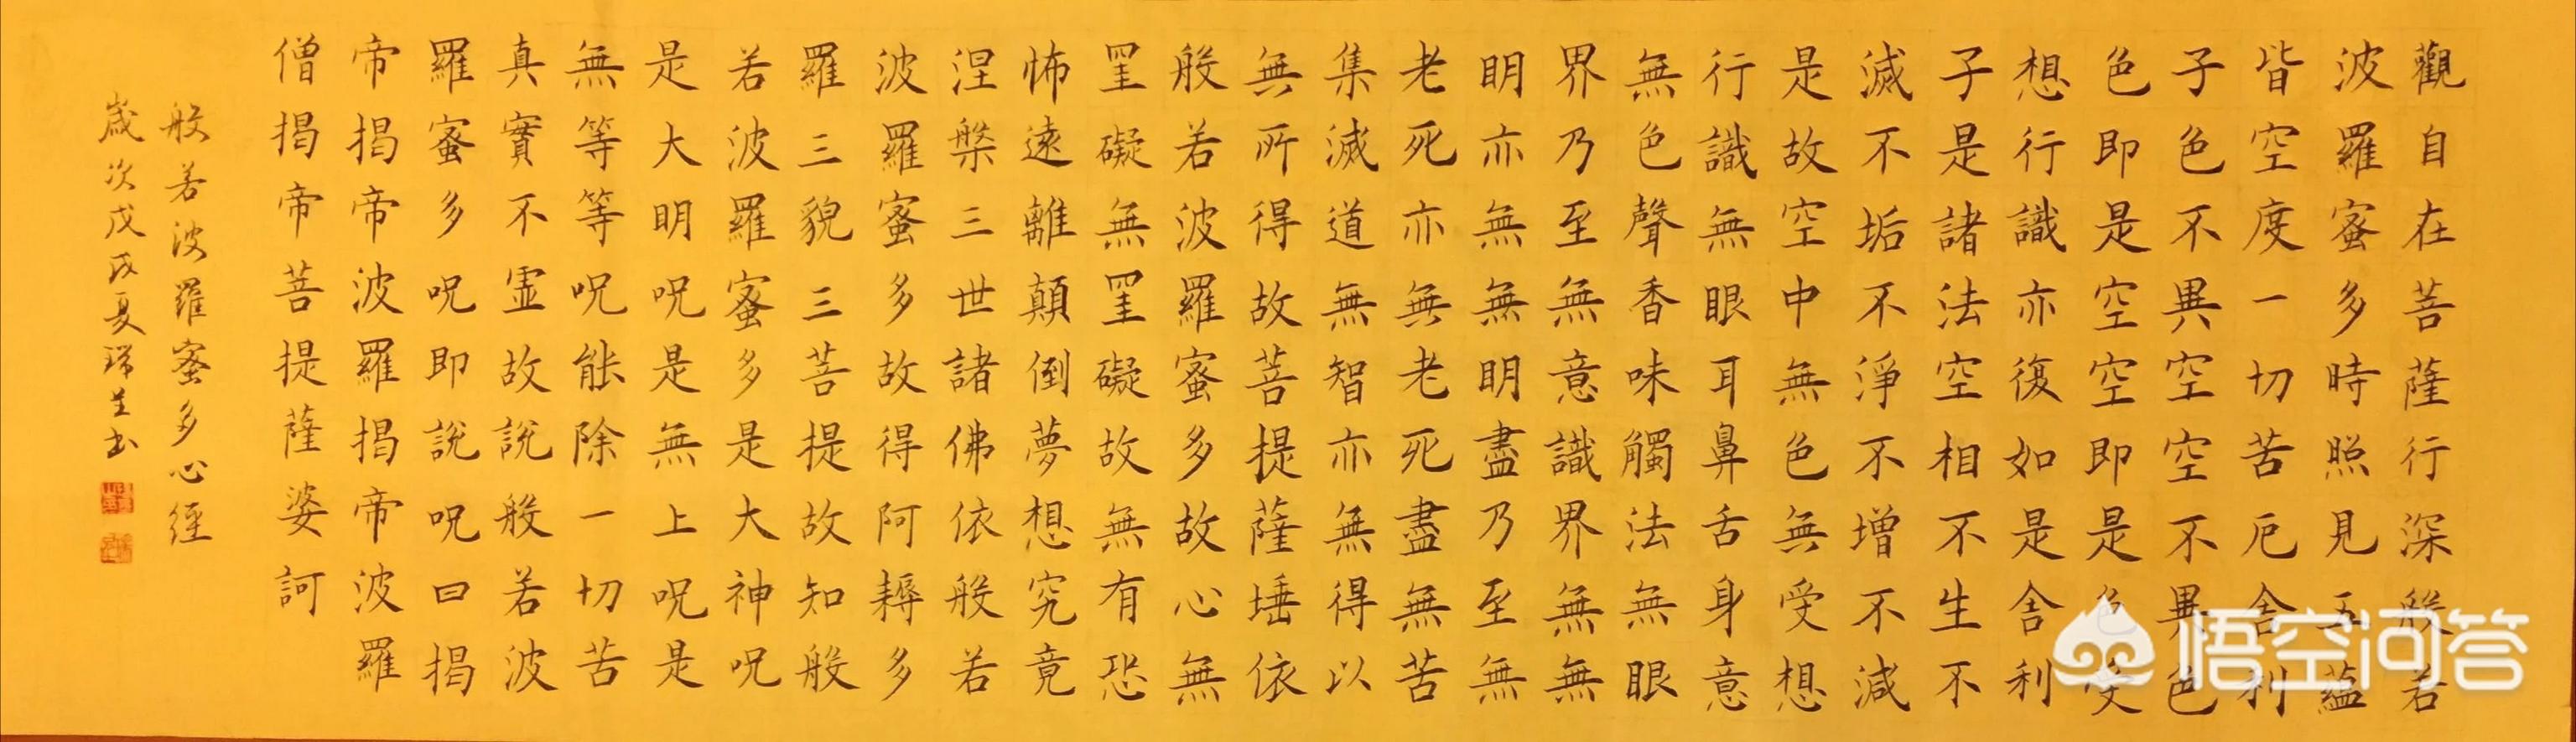 觀自在菩薩行深般若
波羅蜜多時照見五蘊
皆空度一切苦厄舍利
子色不異空空不異色
色即是空空即是色受
想行識亦復如是舍利
子是諸法空相不生不
滅不垢不淨不增不減
是故空中無色無受想
行識無眼耳鼻舌身意
無色聲香味觸法無眼
界乃至無意識界無無
明亦無無明盡乃至無
老死亦無老死盡無苦
集滅道無智亦無得以
無所得故菩提薩埵依
般若波羅蜜多故心無
罣礙無罣礙故無有恐
怖遠離顛倒夢想究竟
涅槃三世諸佛依般若
波羅蜜多故得阿耨多
羅三貌三菩提故知般
若波羅蜜多是大神呪
是大明呪是無上呪是
無等等呪能除一切苦
真實不虛故說般若波
羅蜜多呪即說呪曰揭
帝揭帝波羅揭帝波羅
僧揭帝菩提薩婆訶
般若波羅蜜多心經
歲次戊戌夏瑞生书
悟空问答